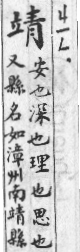 靖
安也深也理也思也
又縣名如漳州南靖縣